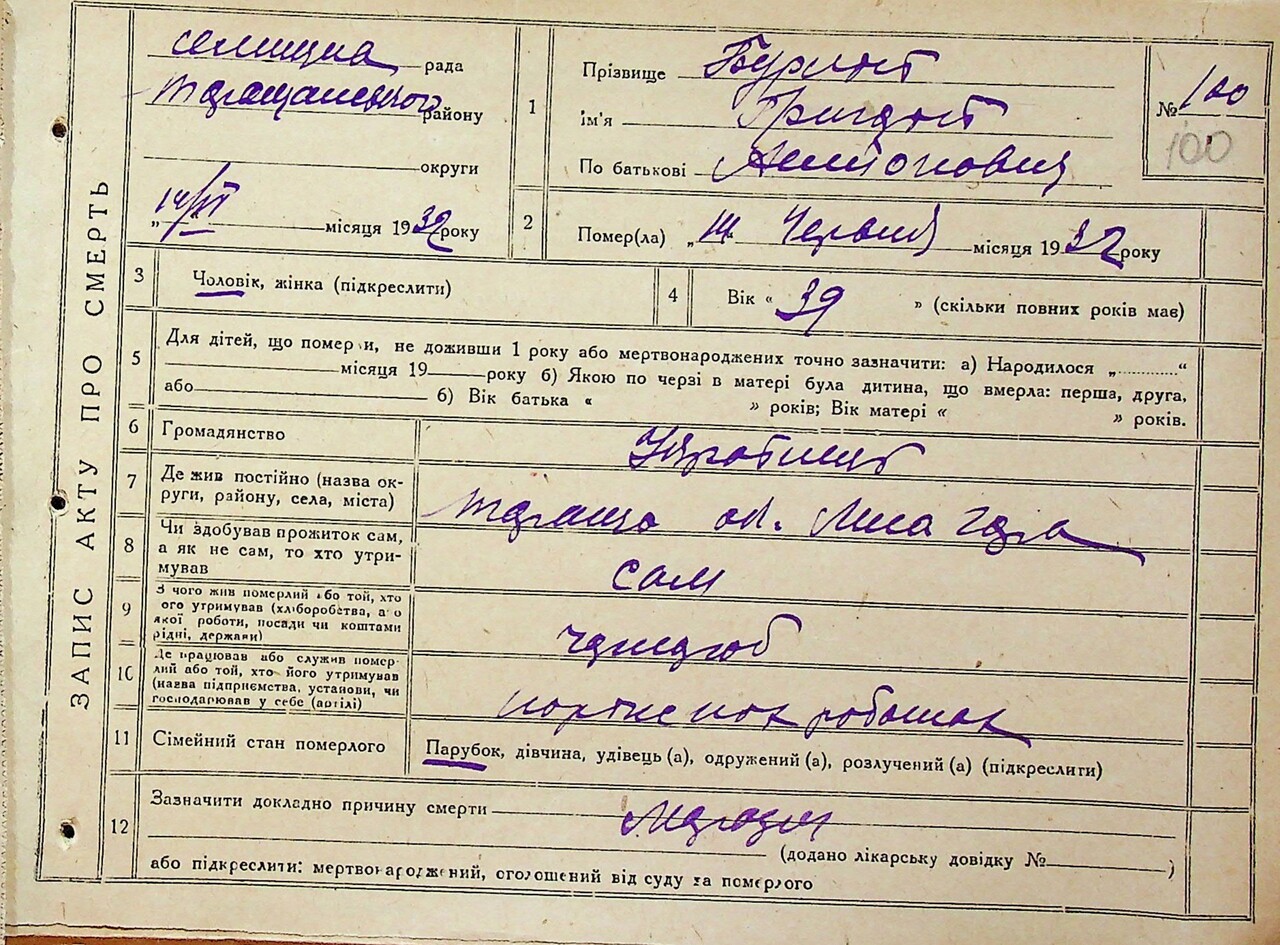 ЗАПИС АКТУ ПРО СМЕРТЬ
селищна рада
Таращанського району
округи
„14/VI місяця 1932 року
1
Прізвище
ім'я Григорій
По батькові Антонович
№ 100
100
2
Помер(ла) „14 Червня місяця 1932 року
3
Чоловік, жінка (підкреслити)
4
Вік « 39 » (скільки повних років має)
5
Для дітей, що померли, не доживши 1 року або мертвонароджених точно зазначити: а) Народилося „............“
місяця 19 року б) Якою по черзі в матері була дитина, що вмерла: перша, друга,
або б) Вік батька « » років; Вік матері « » років.
6
Громадянство
7
Де жив постійно (назва ок-
руги, району, села, міста)
Тараща Лиса Гора
8
Чи здобував прожиток сам,
а як не сам, то хто утри-
мував
сам
9
З чого жив померлий або той, хто
його утримував (хліборобства, а о
якої роботи, посади чи коштами
рідні, держави)
10
Де працював або служив помер-
лий або той, хто його утримував
(назва підприємства, установи, чи
господарював у себе (артілі)
роботах
11
Сімейний стан померлого
Парубок, дівчина, удівець (а), одружений (а), розлучений (а) (підкреслити)
12
Зазначити докладно причину смерти
(додано лікарську довідку № )
або підкреслити: мертвонароджений, оголошений від суду за померлого